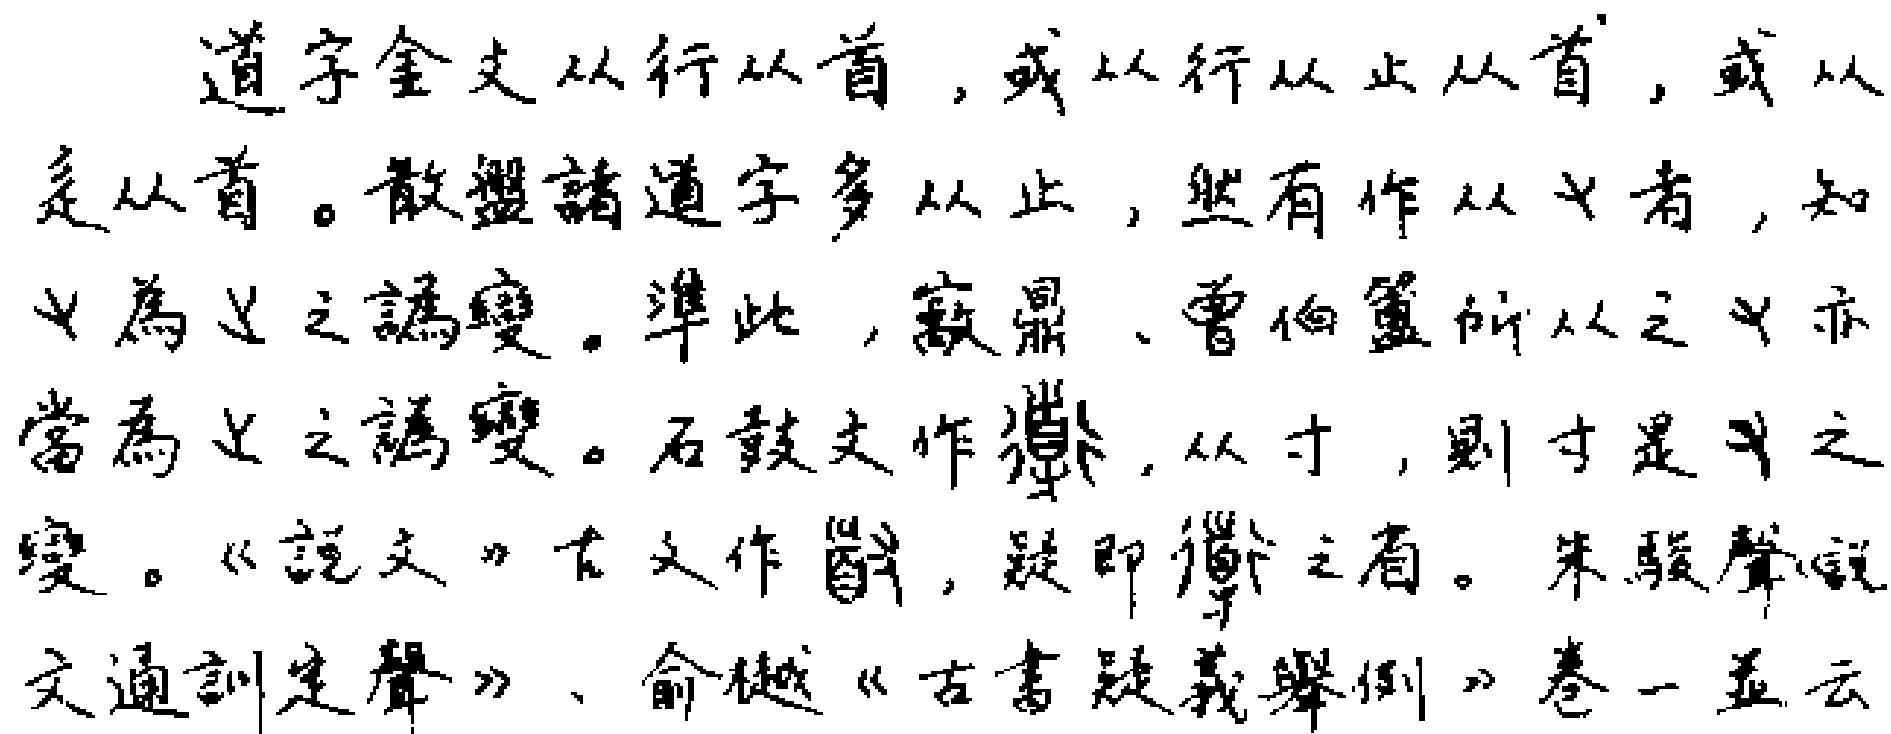 道字金文从行从首，或从行从止从首，或从
辵从首。散盤諸道字多从止，然有作从又者，知
又為止之譌變。準此，䵼鼎、曾伯簠所从之又亦
當為止之譌變。石鼓文作，从寸，則寸是又之
變。《說文》古文作，疑即之省。朱駿聲《說
文通訓定聲》、俞樾《古書疑義舉例》卷一並云